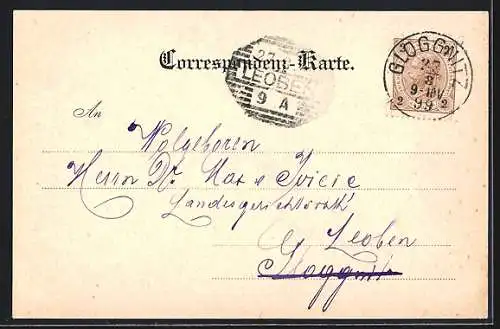 Correspondenz-Karte.
27
LEOBEN
9 A
GLOGGNITZ
27
8
9-11V
99
2 2
An
Wolgeboren
Herrn Dr. Max
Landesgerichtsrath
Leoben
Gloggnitz